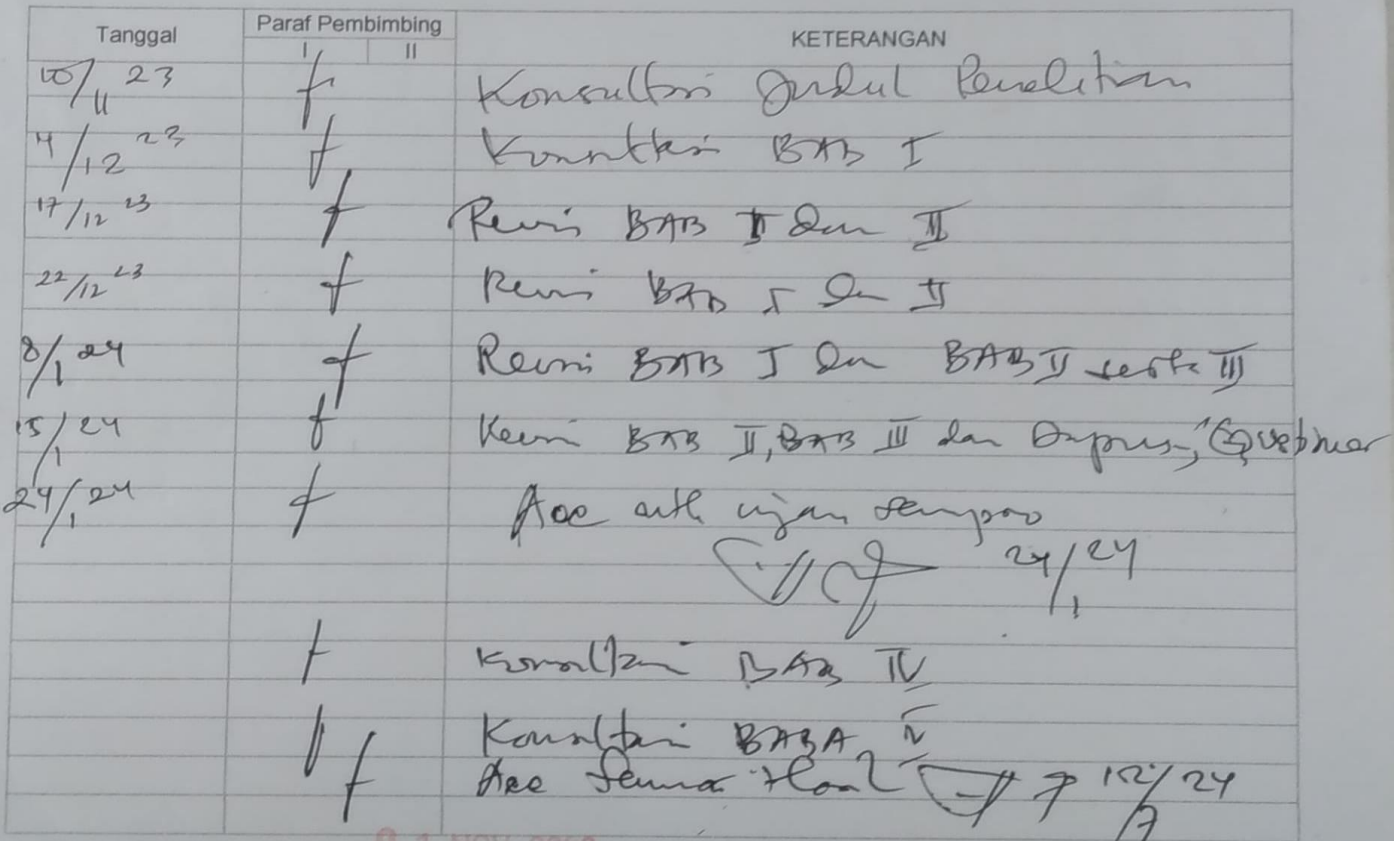 Tanggal Paraf Pembimbing KETERANGAN
I II
10/11 23 Konsultasi Judul Penelitian
4/12 23 Konsultasi BAB I
17/12 23 Revisi BAB I dan II
22/12 23 Revisi BAB I dan II
8/1 24 Revisi BAB I dan BAB II serta III
15/1 24 Revisi BAB II, BAB III dan Dapus,
24/1 24 Acc ujian sempro
24/1 24
Konsultasi BAB IV
Konsultasi
Acc 12/7 24